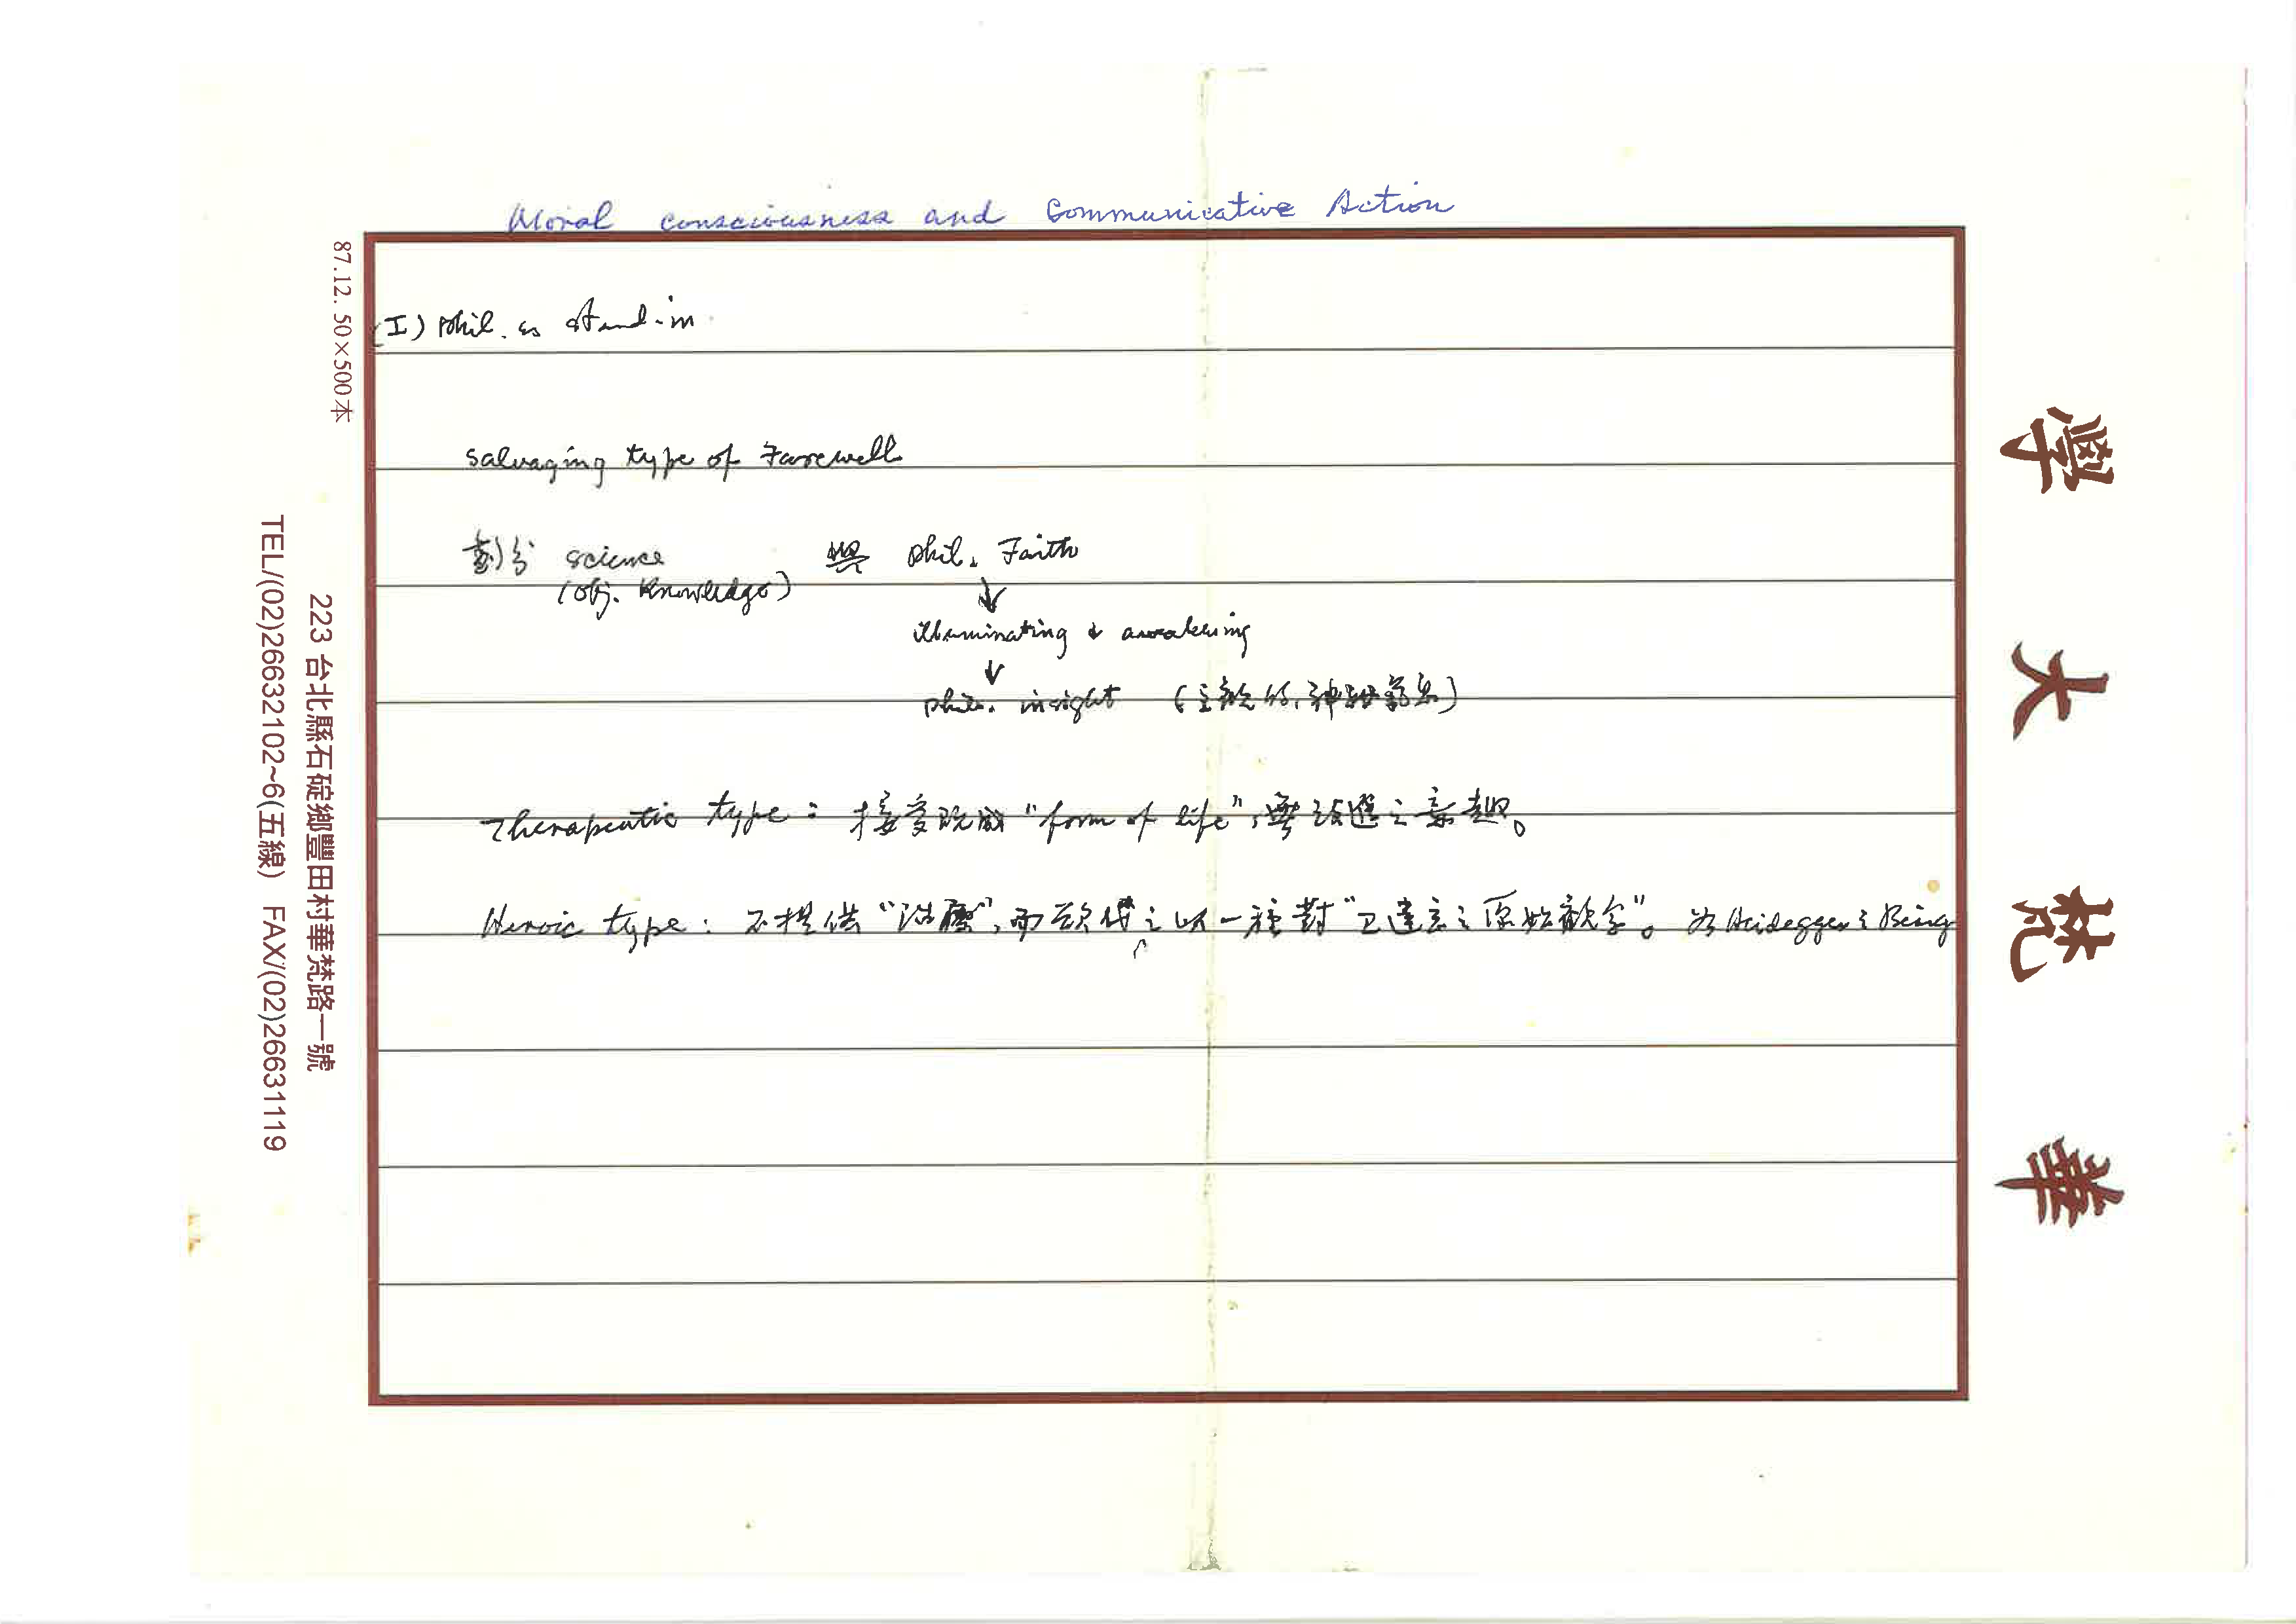 Moral consciousness and Communicative Action
(I) Phil. as stand-in
salvaging type of Farewell
劃分 science 與 phil. Faith
(obj. knowledge)
illuminating & awakening
phil. insight (主觀的,神秘
Therapeutic type : 接受既成 "form of life", 無改進之興趣。
Heroic type : 不提供 "治療", 而欲代之以一種對 "已遺忘之原始概念"。為 Heidegger 之 Being
華梵大學
87.12. 50×500本
223 台北縣石碇鄉豐田村華梵路一號
TEL/(02)26632102~6(五線) FAX/(02)26631119